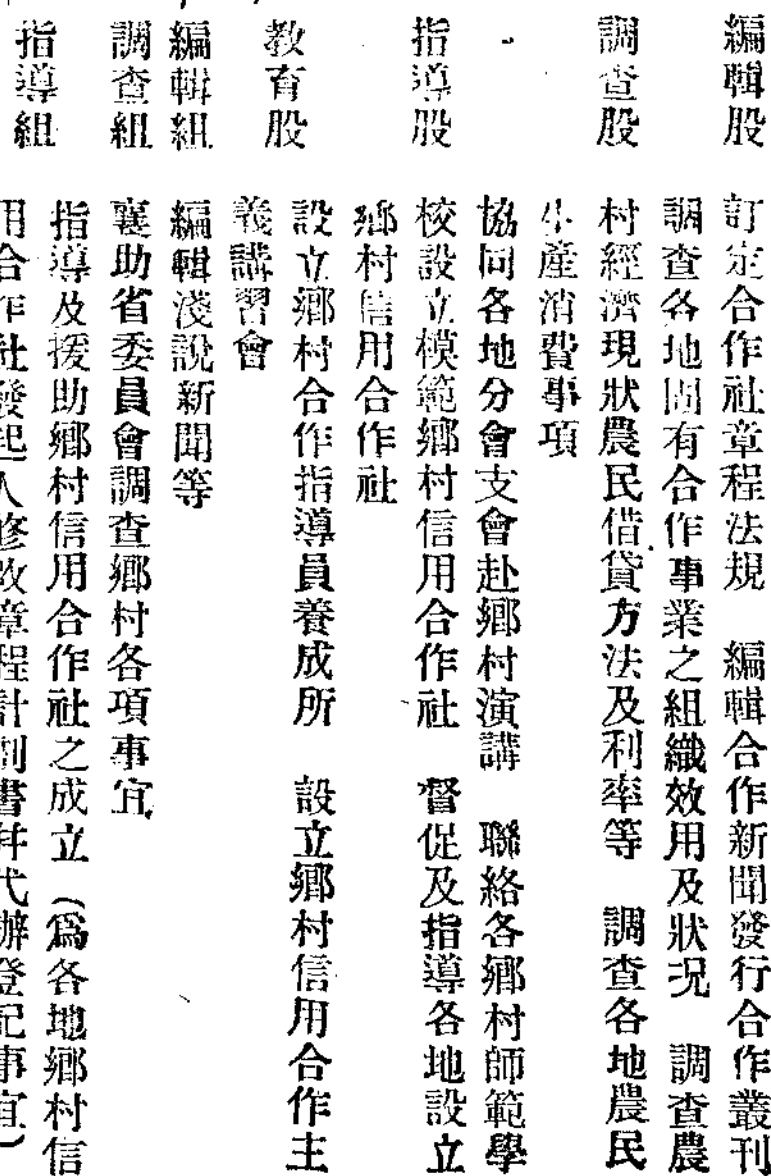 編輯股　訂定合作社章程法規　編輯合作新聞發行合作叢刊
調查各地固有合作事業之組織效用及狀況　調查農
調查股　村經濟現狀農民借貸方法及利率等　調查各地農民
生產消費事項
協同各地分會支會赴鄉村演講　聯絡各鄉村師範學
指導股　校設立模範鄉村信用合作社　督促及指導各地設立
鄉村信用合作社
教育股　設立鄉村合作指導員養成所　設立鄉村信用合作主
義講習會
編輯組　編輯淺說新聞等
調查組　襄助省委員會調查鄉村各項事宜
指導組　指導及援助鄉村信用合作社之成立（爲各地鄉村信
用合作社發起人修改章程計劃書幷代辦登記事宜）